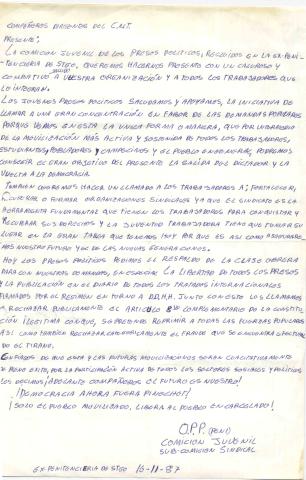 COMPAÑEROS DIRIGENTES DEL C.N.T.
PRESENTE:
LA COMISION JUVENIL DE LOS PRESOS POLITICOS, RECLUIDOS EN LA EX-PENI-
TENCIERIA DE STGO, QUEREMOS HACERNOS PRESENTE CON UN CALUROSO Y
COMBATIVO SALUDO A VUESTRA ORGANIZACIÓN Y A TODOS LOS TRABAJADORES QUE
LA INTEGRAN.
LOS JOVENES PRESOS POLITICOS SALUDAMOS Y APOYAMOS, LA INICIATIVA DE
LLAMAR A UNA GRAN CONCENTRACIÓN EN FABOR DE LAS DEMANDAS POPULARES
PORQUE VEMOS EN ESTA LA UNICA FORMA O MANERA, QUE POR INTERMEDIO
DE LA MOVILIZACIÓN MAS ACTIVA Y SOSTENIDA DE TODOS LOS TRABAJADORES,
ESTUDIANTES, POBLADORES Y CAMPECINOS Y EL PUEBLO EN GENERAL, PODREMOS
CONSEGUIR EL GRAN OBJETIVO DEL PRESENTE LA SALIDA DEL DICTADOR Y LA
VUELTA A LA DEMOCRACIA.
TAMBIEN QUEREMOS HACER UN LLAMADO A LOS TRABAJADORES A; FORTALECER,
O FORMAR ORGANIZACIONES SINDICALES YA QUE EL SINDICATO ES LA
HERRAMIENTA FUNDAMENTAL QUE TIENEN LOS TRABAJADORES PARA CONQUISTAR Y
RECOBRAR SUS DERECHOS Y LA JUVENTUD TRABAJADORA TIENE QUE TOMAR SU
LUGAR EN LA GRAN TAREA QUE TENEMOS HOY POR QUE ES ASI COMO ASEGURARE-
MOS NUESTRO FUTURO Y DE LAS NUEVAS GENERACIONES.
HOY LOS PRESOS POLITICOS PEDIMOS EL RESPALDO DE LA CLASE OBRERA
PARA CON NUESTRAS DEMANDAS, EN ESPECIAL LA LIBERTAD DE TODOS LOS PRESOS
Y LA PUBLICACIÓN EN EL DIARIO DE TODOS LOS TRATADOS INTERNACIONALES
FIRMADOS POR EL REGIMEN EN TORNO A DD.HH. JUNTO CON ESTO LOS LLAMAMOS
A RECHAZAR PUBLICAMENTE EL ARTICULO 8º COMO MEMBRETE DE LA CONSTITU-
CIÓN ILEGITIMA CON QUE, SE PRETENDE REPRIMIR A TODAS LAS FUERZAS POPULARES
ASI COMO TAMBIEN RECHAZAR CATEGORICAMENTE EL FRAUDE QUE SE ENCUENTRA EFECTUAN-
DO EL TIRANO.
SEGUROS DE QUE ESTA Y LAS FUTURAS MOVILIZACIONES SERAN CUALITATIVAMENTE
DE PLENO EXITO, POR LA PARTICIPACIÓN ACTIVA DE TODOS LOS SECTORES SOCIALES Y POLITICOS
LES DECIMOS ¡ADELANTE COMPAÑEROS EL FUTURO ES NUESTRO!
¡DEMOCRACIA AHORA FUERA PINOCHET!
¡SOLO EL PUEBLO MOVILIZADO, LIBERA AL PUEBLO ENCARCELADO!
O.P.P. (PENI)
COMISION JUVENIL
SUB-COMISION SINDICAL
EX-PENITENCIERIA DE STGO 16-11-87